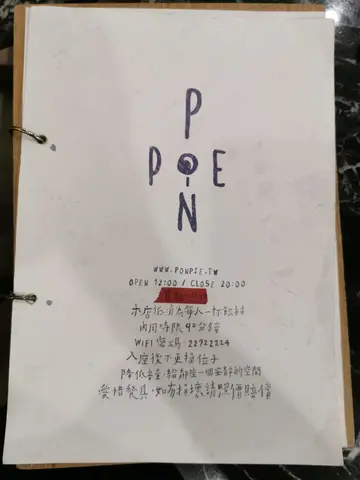 P
P O E
N
WWW.PONPIE.TW
OPEN 12:00 / CLOSE 20:00
本店低消為每人一杯飲料
內用時限90分鐘
WIFI密碼:22722224
入座後不更換位子
降低音量,給鄰座一個安靜的空間
愛惜餐具,如有損壞請照價賠償